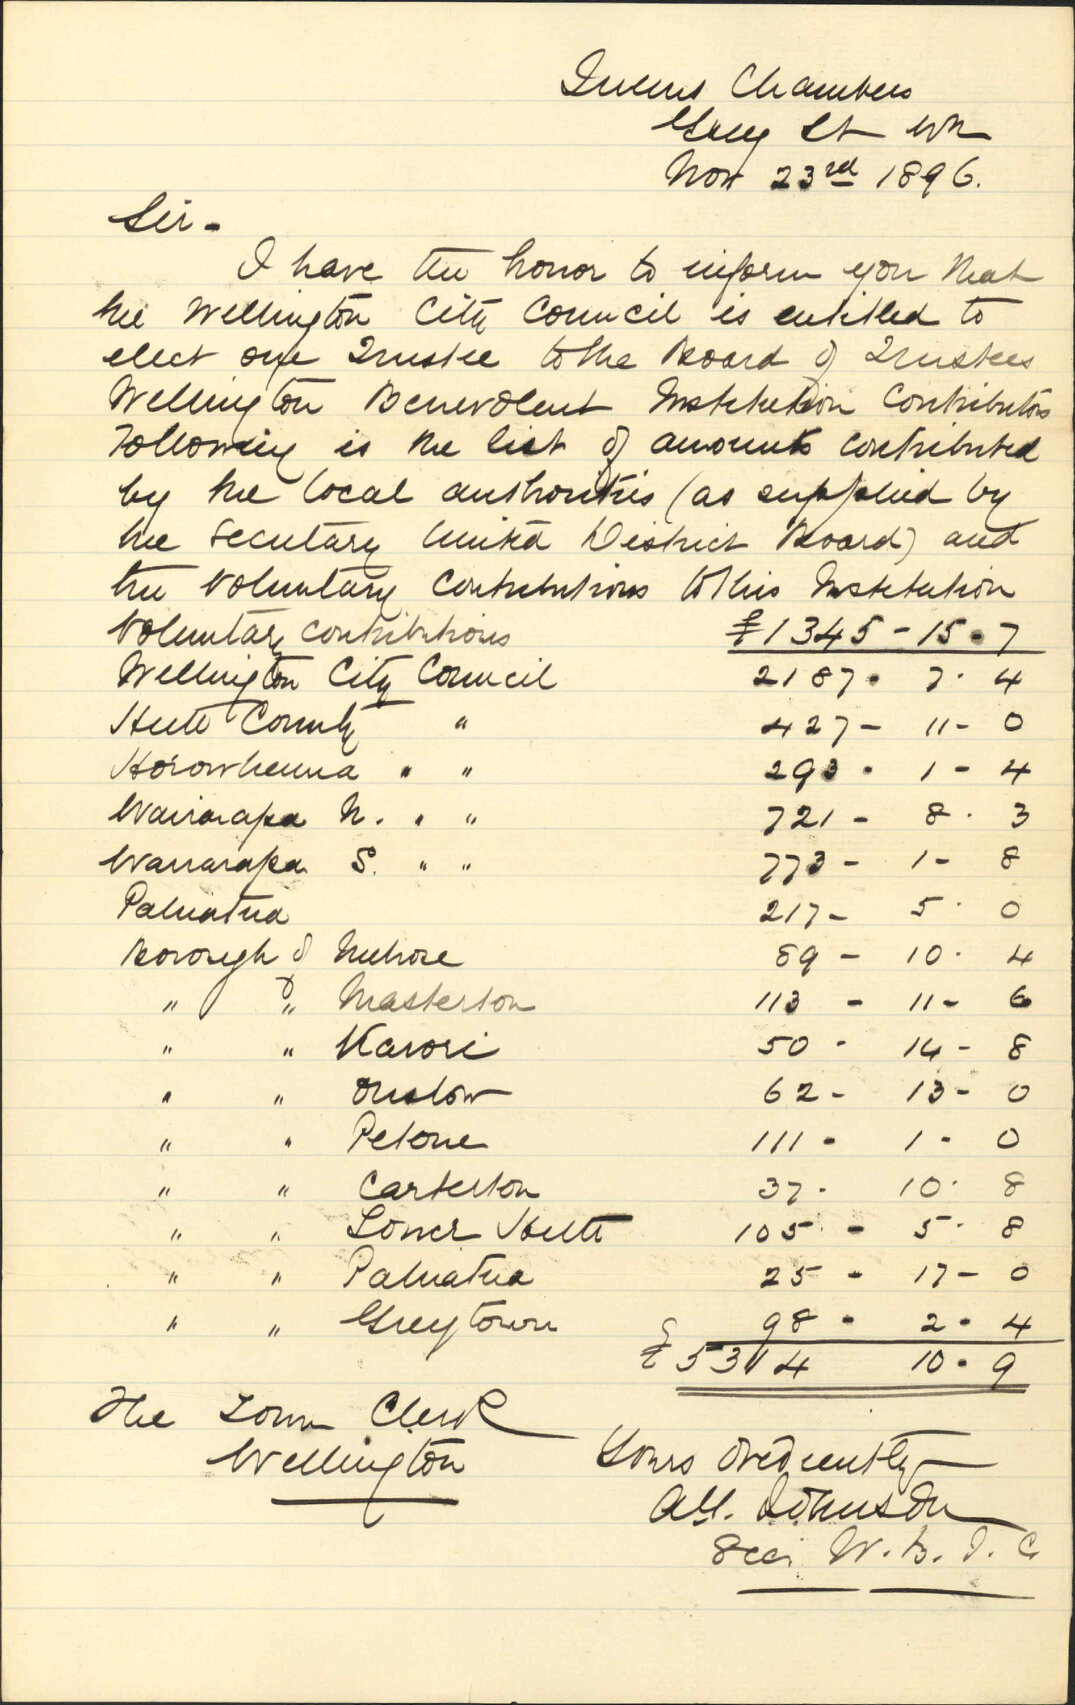 Queens Chambers
Grey St Wn
Nov 23rd 1896.
Sir -
I have the honor to inform you that
the Wellington City Council is entitled to
elect one Trustee to the Board of Trustees
Wellington Benevolent Institution Contributors
Following is the list of amounts contributed
by the local authorities (as supplied by
the Secretary United District Board) and
the Voluntary Contributions to this Institution
Voluntary contributions £1345 - 15 - 7
Wellington City Council 2187 - 7 - 4
Hutt County " 427 - 11 - 0
Horowhenua " " 293 - 1 - 4
Wairarapa N. " " 721 - 8 - 3
Wairarapa S. " " 773 - 1 - 8
Pahiatua 217 - 5 - 0
Borough of Melrose 89 - 10 - 4
" " Masterton 113 - 11 - 6
" " Karori 50 - 14 - 8
" " Onslow 62 - 13 - 0
" " Petone 111 - 1 - 0
" " Carterton 37 - 10 - 8
" " Lower Hutt 105 - 5 - 8
" " Pahiatua 25 - 17 - 0
" " Greytown 98 - 2 - 4
£ 5314 10 - 9
The Town Clerk
Wellington
Yours obediently
Johnson
Sec. W. B. I. C